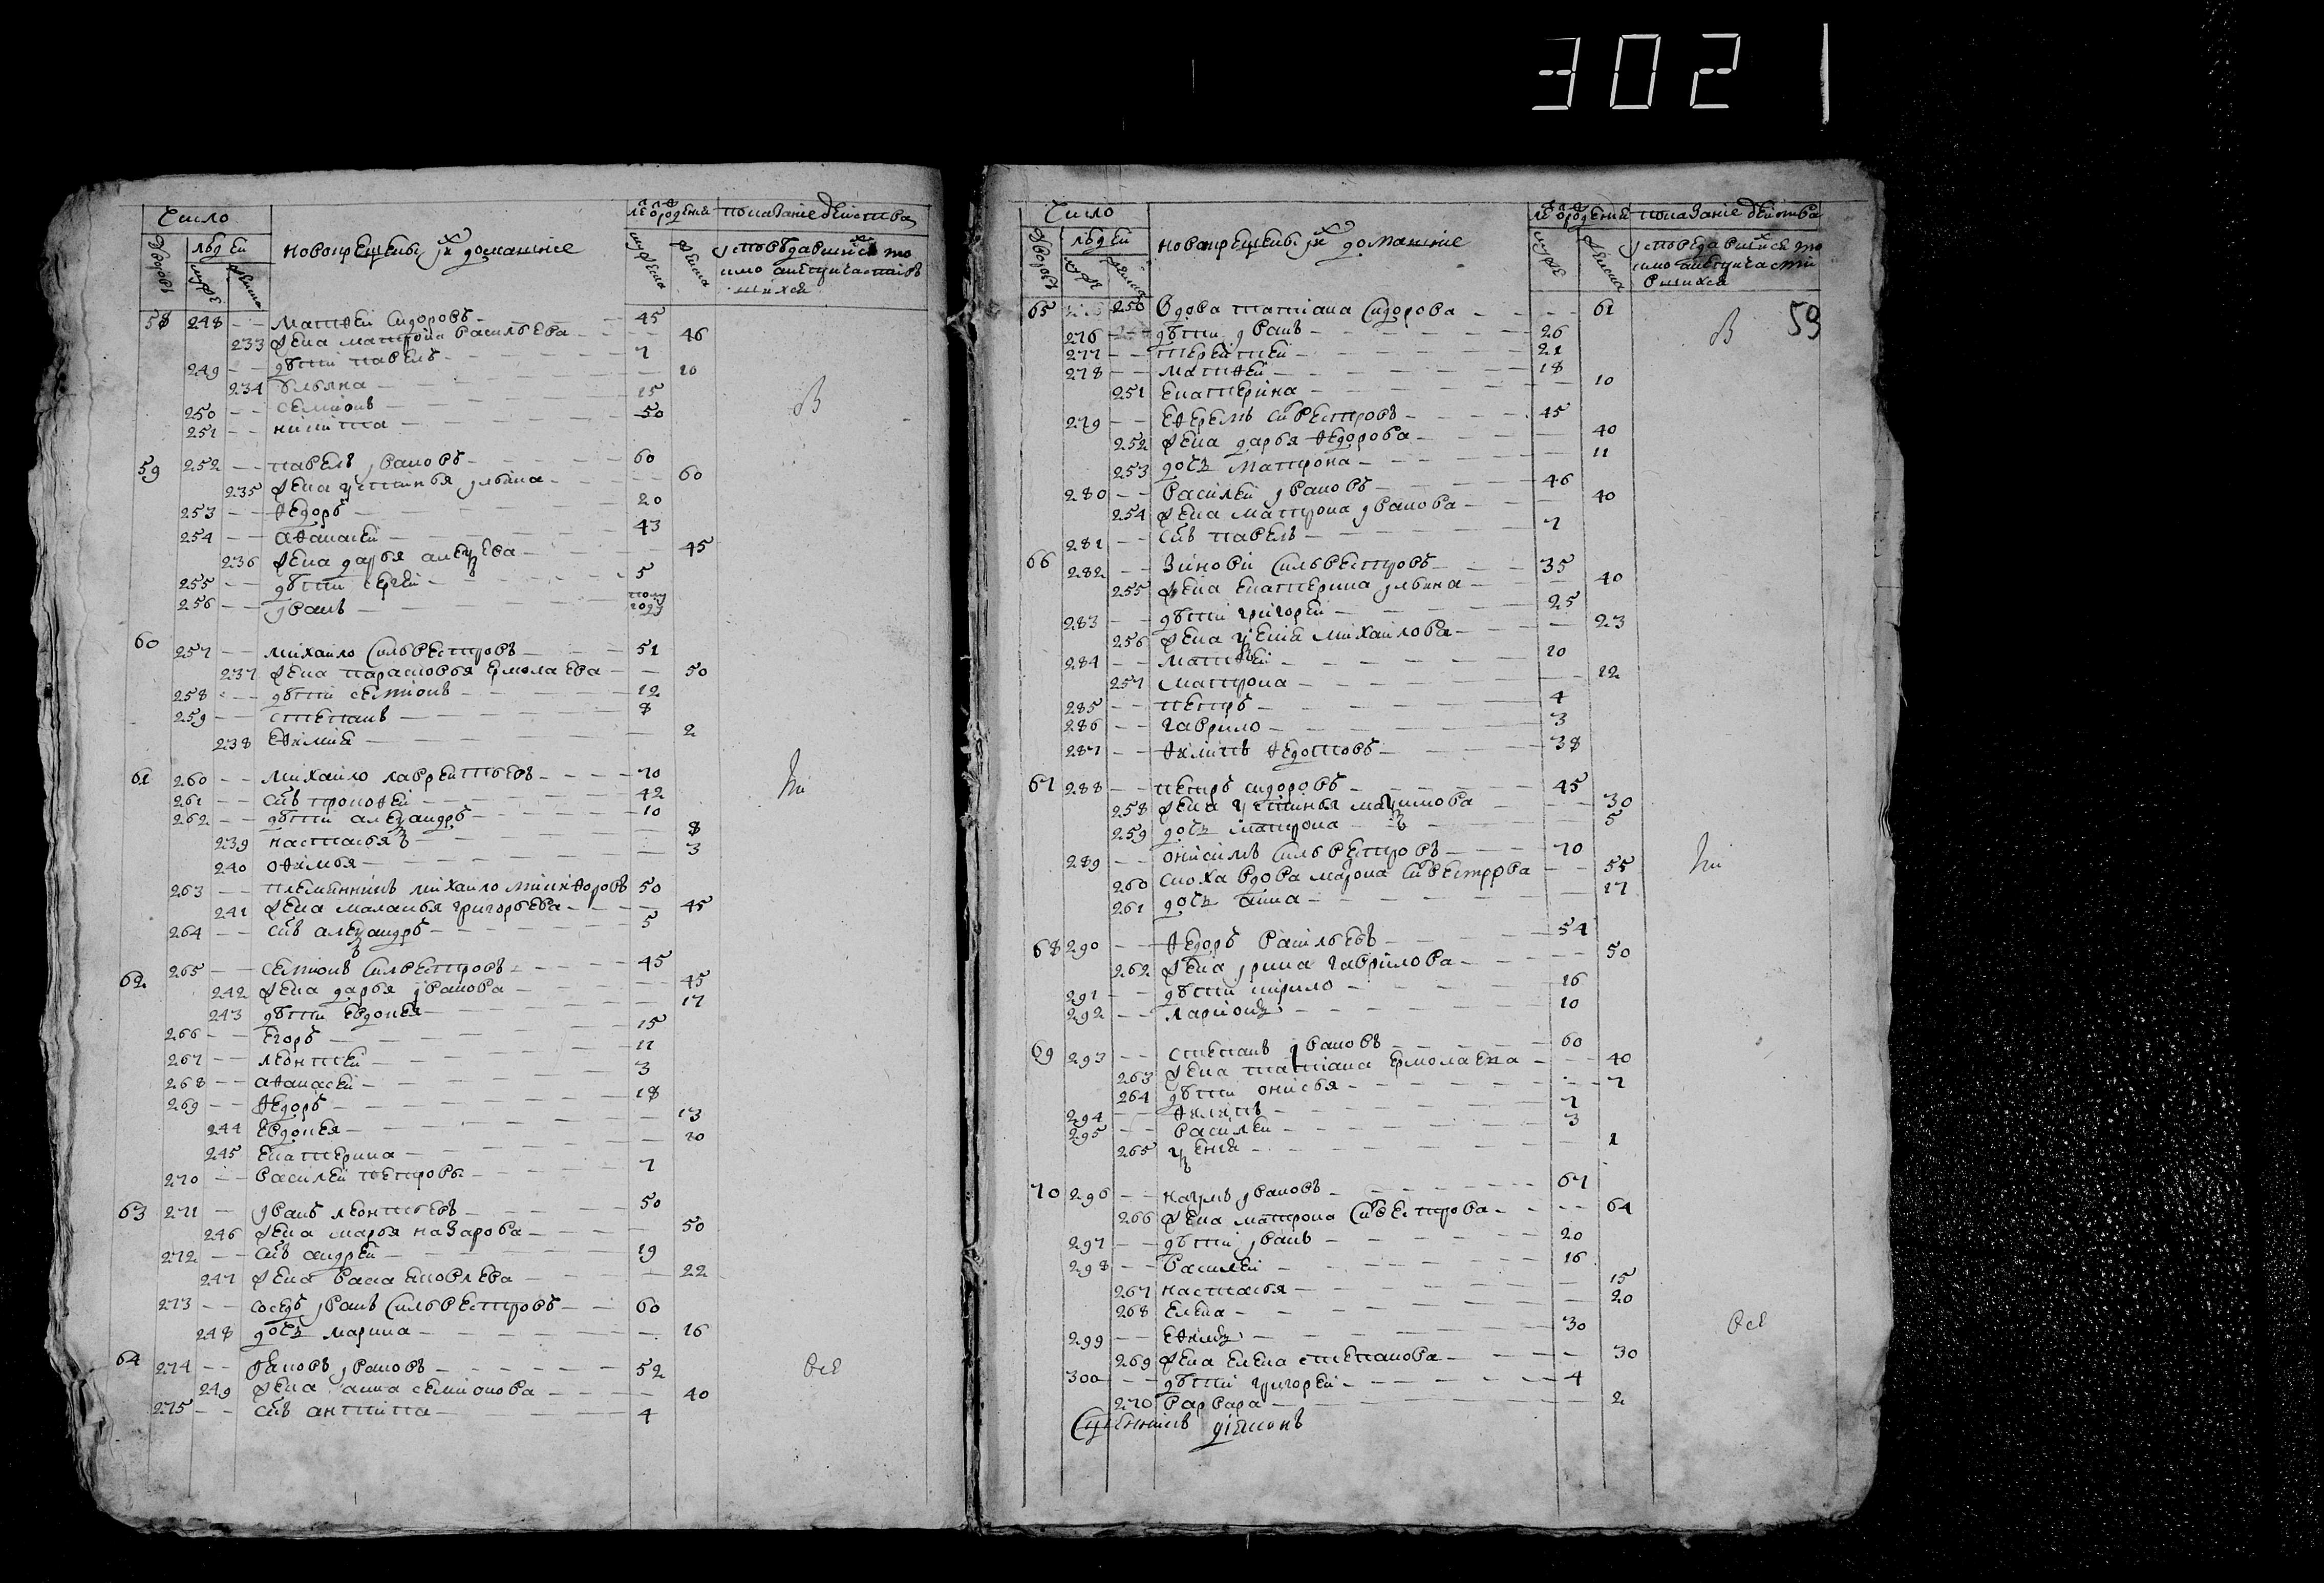 3021
Число
Дворовъ
людей
муже
женска
новокрещены ихъ домашние
лета от рождения
мужеска
женска
показание действа
исповедавшиеся то
кмо а не причастив
шихся
58 248 -- Матфей Сидоровъ 45
233 жена Матрона Васильева 46
249 -- дѣти Павелъ 7
234 Ульяна 10
250 -- Семионъ 15
251 -- Никита 50
В
59 252 -- Павелъ Ивановъ 60
235 жена Устинья Ульяна 60
253 -- Федоръ 20
254 -- Афанасей 43
236 жена Дарья Алексеева 45
255 -- дѣти Сергей 5
256 -- Иванъ полу году
60 257 -- Михайло Сильвестровъ 51
237 жена Парасковья Ермолаева 50
258 -- дѣти Семионъ 12
259 -- Степанъ 8
238 Ефимия 2
61 260 -- Михайло Лаврентьевъ 70
261 -- снъ Прокофей 42
262 -- дѣти Александръ 10
239 Настасья 8
240 Офимья 3
263 -- племянникъ Михайло Никифоровъ 50
241 жена Маланья Григорьева 45
264 -- снъ Александръ 5
62 265 -- Семионъ Сильвестровъ 45
242 жена Дарья Иванова 45
243 дѣти Евдокея 17
266 -- Егоръ 15
267 -- Леонтей 11
268 -- Афанасей 3
269 -- Федоръ 18
244 Евдокея 13
245 Екатерина 10
270 -- Василей Петровъ 7
63 271 -- Иванъ Леонтьевъ 50
246 жена Марья Назарова 50
272 -- снъ Андрей 19
247 жена Васа Яковлева 22
273 -- соседъ Иванъ Сильвестровъ 60
248 дочь Марина 16
64 274 -- Яковъ Ивановъ 52
249 жена Анна Семионова 40
275 -- снъ Антипа 4
все
59
Число
Дворовъ
людей
муже
женска
новокрещены ихъ домашние
лета от рождения
мужеска
женска
показание действа
исповедавшиеся то
кмо а не причасти
вшихся
65 250 Вдова Татиана Сидорова 61
276 -- дѣти Иванъ 26
277 -- Терентей 21
278 -- Матфей 18
251 Екатерина 10
279 -- Ефремъ Сивестровъ 45
252 жена Дарья Федорова 40
253 дочь Матрона 11
280 -- Василей Ивановъ 46
254 жена Матрона Иванова 40
281 -- снъ Павелъ 7
В
66 282 -- Зиновий Сильвестровъ 35
255 жена Екатерина Ульяна 40
283 -- дѣти Григорей 25
256 жена Ксения Михайлова 23
284 -- Матфей 10
257 Матрона 12
285 -- Петръ 4
286 -- Гаврило 3
287 -- Филипъ Федотовъ 38
67 288 -- Петръ Сидоровъ 45
258 жена Устинья Максимова 30
259 дочь Матрона 5
289 -- Онисимъ Сильвестровъ 70
260 сноха вдова Марона Сивестрова 55
261 дочь Анна 17
68 290 -- Федоръ Васильевъ 54
262 жена Ирина Гаврилова 50
291 -- дѣти Кирило 16
292 -- Ларионъ 10
69 293 -- Степанъ Ивановъ 60
263 жена Татиана Ермолаева 40
264 дѣти Онисья 7
294 -- Филипъ 7
295 -- Василей 3
265 Ксения 1
70 296 -- Наумъ Ивановъ 67
266 жена Матрона Сивестрова 64
297 -- дѣти Иванъ 20
298 -- Василей 16
267 Настасья 15
268 Елена 20
299 -- Ефимъ 30
269 жена Елена Степанова 30
300 -- дѣти Григорей 4
270 Варвара 2
все
Сщенникъ диаконъ